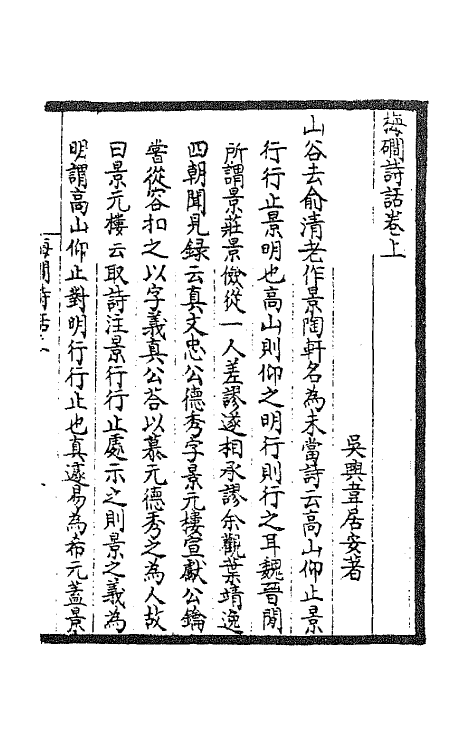 梅磵詩話卷上
吳興韋居安著
山谷去俞清老作景陶軒名為未當詩云高山仰止景
行行止景明也高山則仰之明行則行之耳魏晉間
所謂景莊景儉從一人差謬遂相承謬余觀葉靖逸
四朝聞見録云真文忠公德秀字景元樓宣獻公鑰
嘗從容扣之以字義真公荅以慕元德秀之為人故
曰景元樓云取詩注景行行止處示之則景之義為
明謂高山仰止對明行行止也真遂易為希元盖景
梅磵詩話上